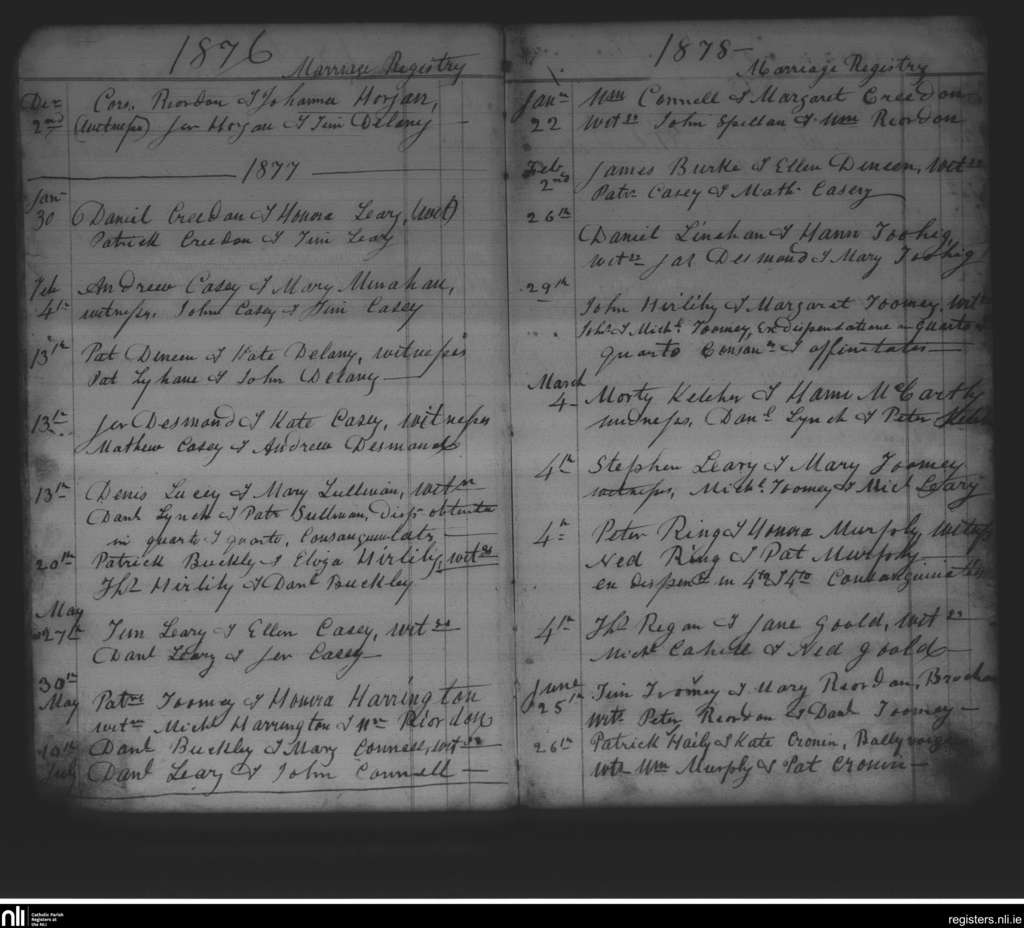 1876
Marriage Registry
Decr Cors. Riordan & Johanna Horgan,
2nd (witnesses) Jer Horgan & Tim Delany
1877
Jan
30 Daniel Creedon & Honora Leary, (wit)
Patrick Creedon & Tim Leary
Feb Andrew Casey & Mary Minahan,
4th witness, John Casey & Tim Casey
13th Pat Dineen & Kate Delany, witnesses
Pat Lyhane & John Delany
13th Jer Desmond & Kate Casey, witnesses
Mathew Casey & Andrew Desmond
13th Denis Lucey & Mary Sullivan, witn
Danl Lynch & Patk Sullivan, Disp obtenta
in quarto & quarto, Consanguinitatis
20th Patrick Buckley & Eliza Hirlihy, wit
Ths Hirlihy & Danl Buckley
May
27th Tim Leary & Ellen Casey, wit
Danl Leary & Jer Casey
30th
May Patk Toomey & Honora Harrington
wit Michl Harrington & Wm Riordon
10th Danl Buckley & Mary Connell, wit
July Danl Leary & John Connell
1878
Marriage Registry
Jany Wm Connell & Margaret Creedon
22 wit John Spillan & Wm Riordon
Feb James Burke & Ellen Dineen, wit
2nd Patk Casey & Math Casey
26th
Daniel Linehan & Hann Toohig,
wit Jas Desmond & Mary Toohig
29th
John Hirlihy & Margaret Toomey, wit
John & Michl Toomey, Ex dispensatione in quarto
quarto Consan & affinitatis
March
4 Morty Keleher & Hann McCarthy
witness, Danl Lynch & Peter
4th Stephen Leary & Mary Toomey
witness, Michl Toomey & Mich Leary
4th Peter Ring & Honora Murphy, witness
Ned Ring & Pat Murphy
en dispen in 4to & 4to
4th Ths Regan & Jane Goold, wit
Michl Cahill & Ned Goold
June Tim Twomey & Mary Riordan,
25th wit Peter Riordon & Danl Toomey
26th Patrick Haily & Kate Cronin,
wit Wm Murphy & Pat Cronin
nli
Catholic Parish
Registers at
the NLI
registers.nli.ie